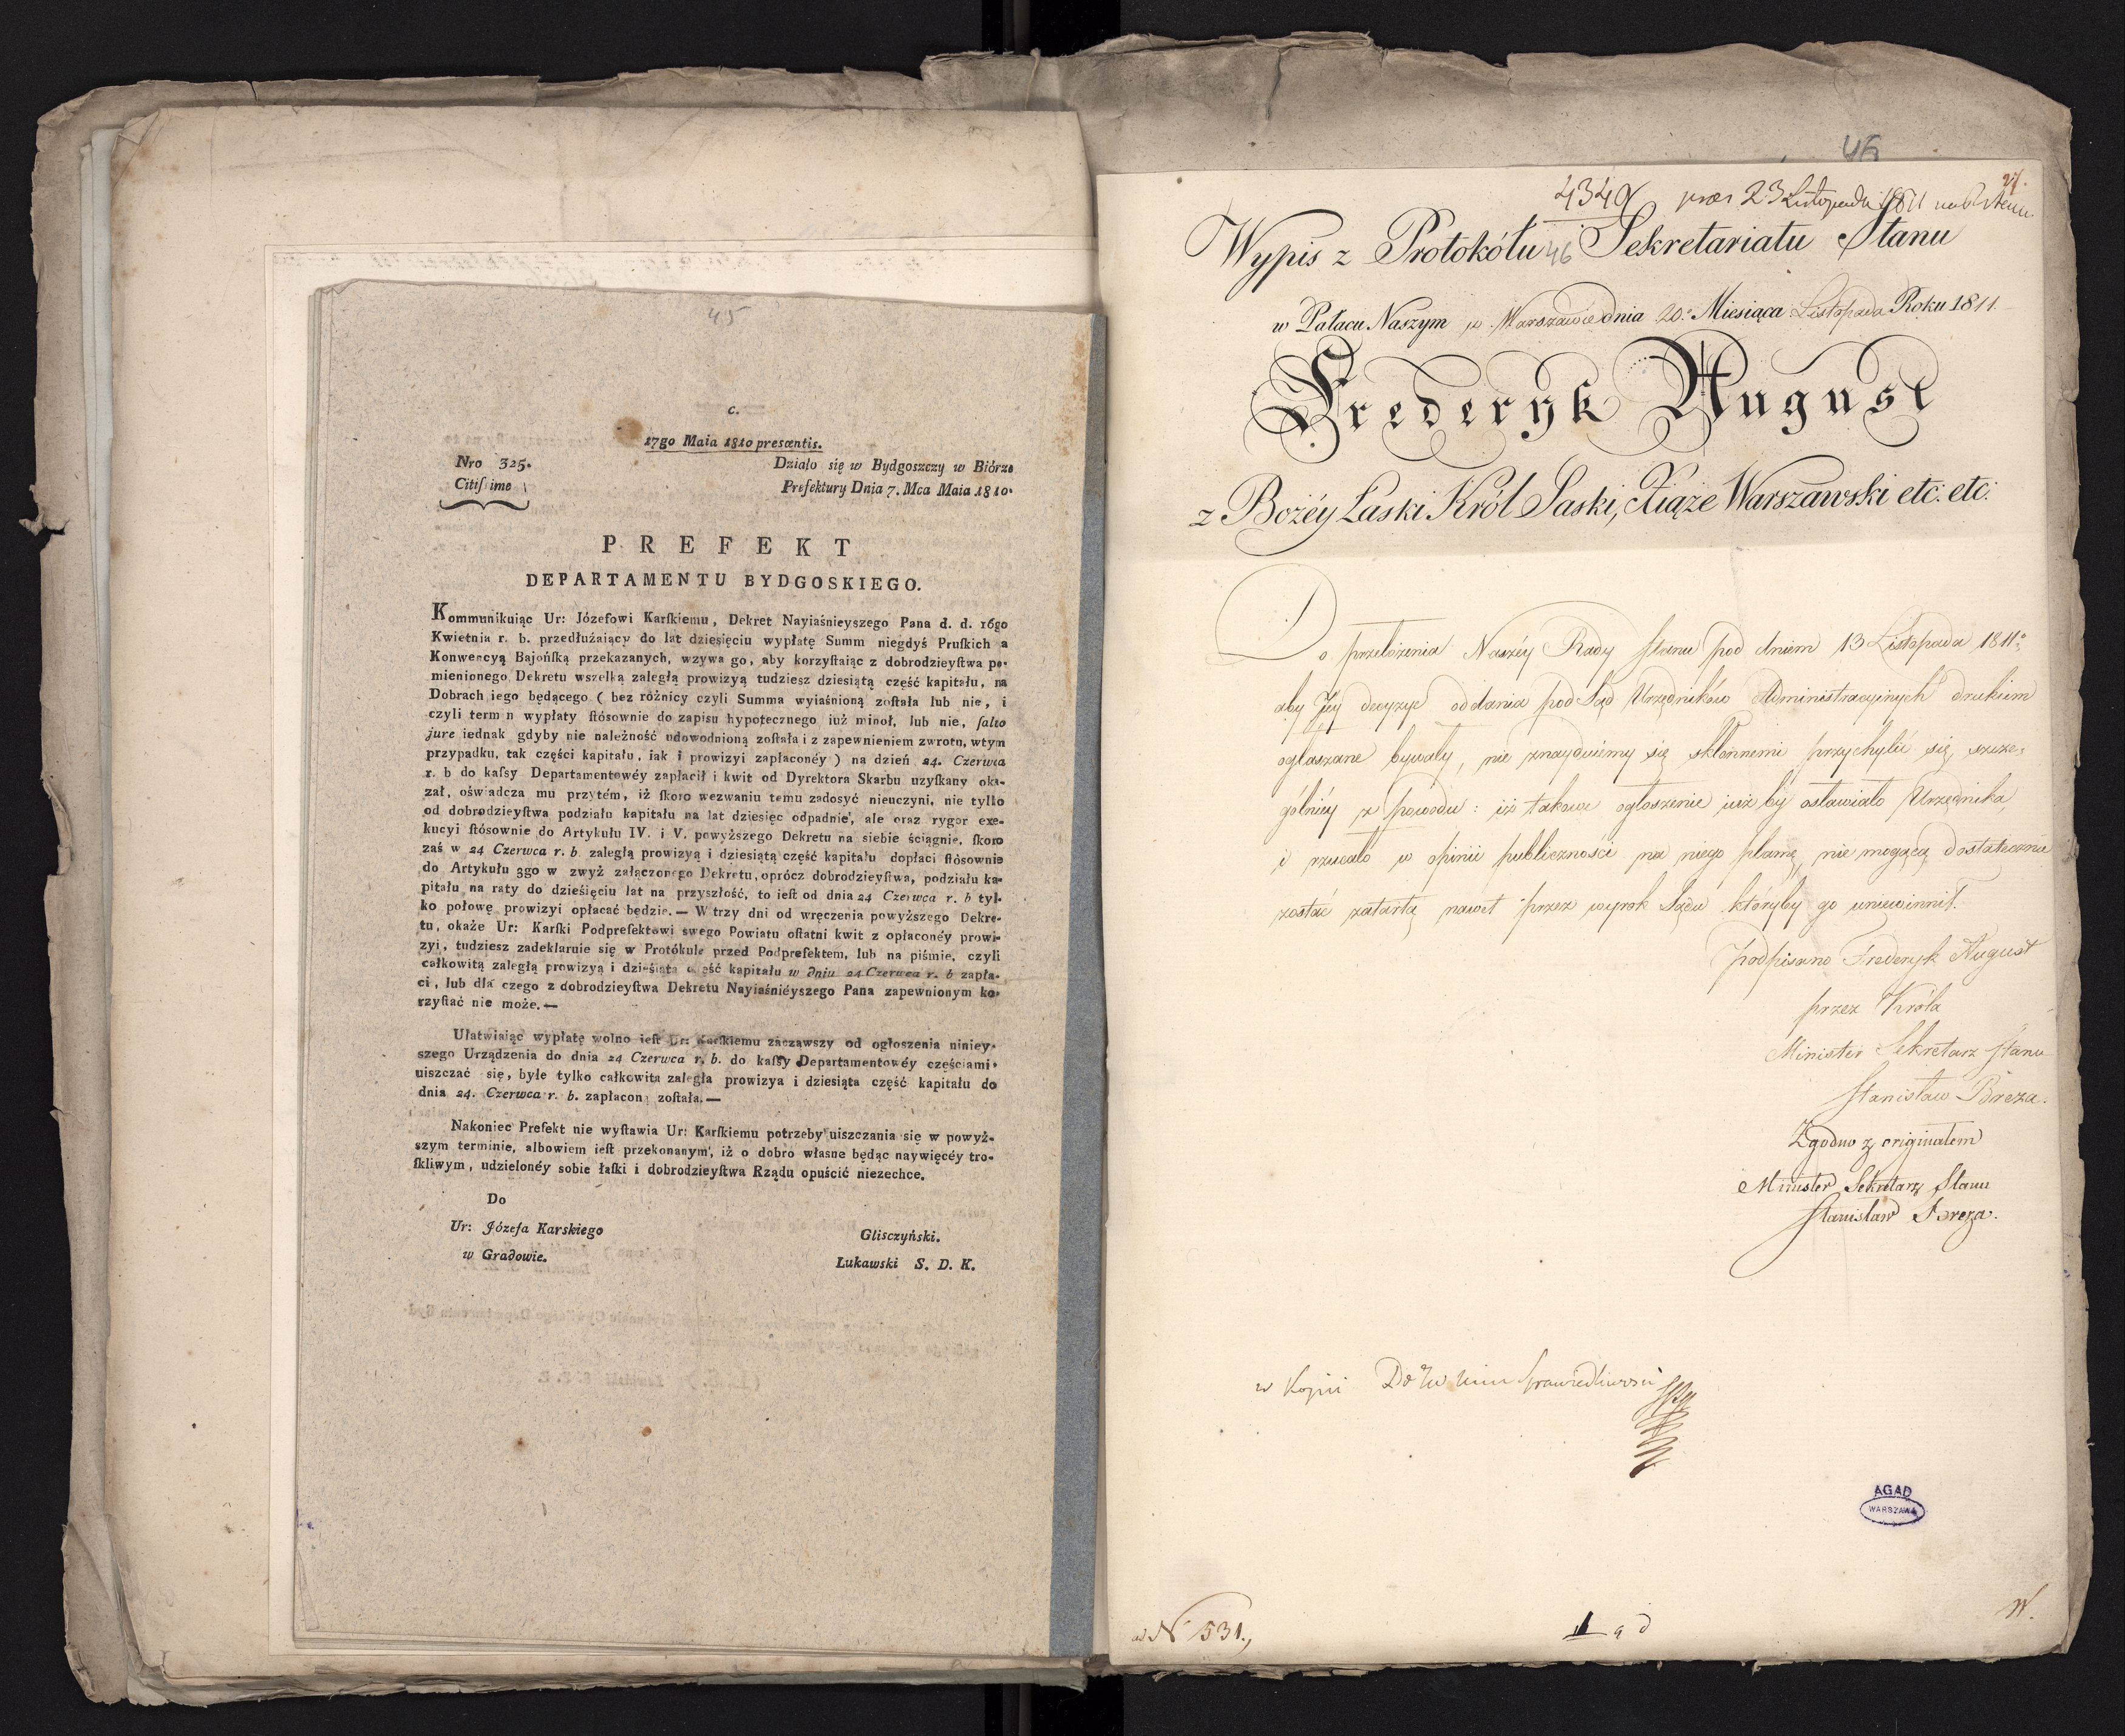 45
c.
17go Maia 1810 presœntis.
Nro 325.
Działo się w Bydgoszczy w Biórze
Citiſsime
Prefektury Dnia 7. Mca Maia 1810.
PREFEKT
DEPARTAMENTU BYDGOSKIEGO.
Kommunikuiąc Ur: Józefowi Karſkiemu, Dekret Nayiaśnieyszego Pana d. d. 16go
Kwietnia r. b. przedłużaiący do lat dziesięciu wypłatę Summ niegdyś Pruſkich a
Konwencyą Bajońſką przekazanych, wzywa go, aby korzyſtaiąc z dobrodzieyſtwa po-
mienionego Dekretu wszelką zaległą prowizyą tudziesz dziesiątą część kapitału, na
Dobrach iego będącego ( bez różnicy czyli Summa wyiaśnioną zoſtała lub nie, i
czyli term n wypłaty ſtósownie do zapisu hypotecznego iuż minoł, lub nie, ſalvo
jure iednak gdyby nie należność udowodnioną zoſtała i z zapewnieniem zwrotu, wtym
przypadku, tak części kapitału, iak i prowizyi zapłaconéy ) na dzień 24. Czerwca
r. b do kaſsy Departamentowéy zapłacił i kwit od Dyrektora Skarbu uzyſkany oka-
zał, oświadcza mu przytém, iż ſkoro wezwaniu temu zadosyć nieuczyni, nie tylło
od dobrodzieyſtwa podziału kapitału na lat dziesięc odpadnie', ale oraz rygor exe-
kucyi ſtósownie do Artykułu IV. i V. powyższego Dekretu na siebie ściągnie, ſkoro
zaś w 24 Czerwca r. b. zaległą prowizyą i dziesiątą część kapitału dopłaci ſtósownie
do Artykułu 3go w zwyż załączonego Dekretu, oprócz dobrodzieyſtwa, podziału ka-
pitału na raty do dzieśięciu lat na przyszłość, to ieſt od dnia 24 Czerwca r. b tyl-
ko połowę prowizyi opłacać będzie. — W trzy dni od wręczenia powyższego Dekre-
tu, okaże Ur: Karſki Podprefektowi swego Powiatu oſtatni kwit z opłaconéy prowi-
zyi, tudziesz zadeklaruie się w Protókule przed Podprefektem, lub na piśmie, czyli
całkowitą zaległą prowizyą i dzieśiątą część kapitału w dniu 24 Czerwca r. b zapła-
ci, lub dla czego z dobrodzieyſtwa Dekretu Nayiaśniéyszego Pana zapewnionym ko-
rzyſtać nie może. —
Ułatwiaiąc wypłatę wolno ieſt Ur: Karſkiemu zacząwszy od ogłoszenia niniey-
szego Urządzenia do dnia 24 Czerwca r. b. do kaſsy Departamentowéy częściami
uiszczać się, byłe tylko całkowita zaległa prowizya i dziesiąta część kapitału do
dnia 24. Czerwca r. b. zapłacon zoſtała. —
Nakoniec Prefekt nie wyſtawia Ur: Karſkiemu potrzeby uiszczania się w powyż-
szym terminie, albowiem ieſt przekonanym, iż o dobro własne będąc naywięcéy tro-
ſkliwym, udzielonéy sobie łaſki i dobrodzieyſtwa Rządu opuścić niezechce.
Do
Ur: Józefa Karskiego
w Gradowie.
Glisczyński.
Łukawski S. D. K.
46
27.
4340 prez 23 Listopada 1811
Wypis z Protokółu 46 Sekretariatu Stanu
w Pałacu Naszym w Warszawie dnia 20. Miesiąca Listopada Roku 1811.
Frederyk August
z Bożéy Łaski Król Saski, Xiąże Warszawski etc: etc:
Do przełożenia Naszéy Rady Stanu pod dniem 13 Listopada 1811
aby Jéy decyzye oddania pod Sąd Urzędników Administracyinych drukiem
ogłaszane bywały, nie znayduiémy się skłonnemi przychylić się, szcze-
gólniéy z powodu: iż takowe ogłoszenie iuż by osławiało Urzędnika,
i rzucało w opinii publiczności na niego plamę, nie mogącą dostatecznie
zostać zatartą nawet przez wyrok Sądu któryby go uniewinnił.
Podpisano Frederyk August
przez Króla
Minister Sekretarz Stanu
Stanisław Breza.
Zgodno z originałem
Minister Sekretarz Stanu
Stanisław Breza.
w Kopii Do Sprawiedliwości
AGAD
WARSZAWA
ad N 531.